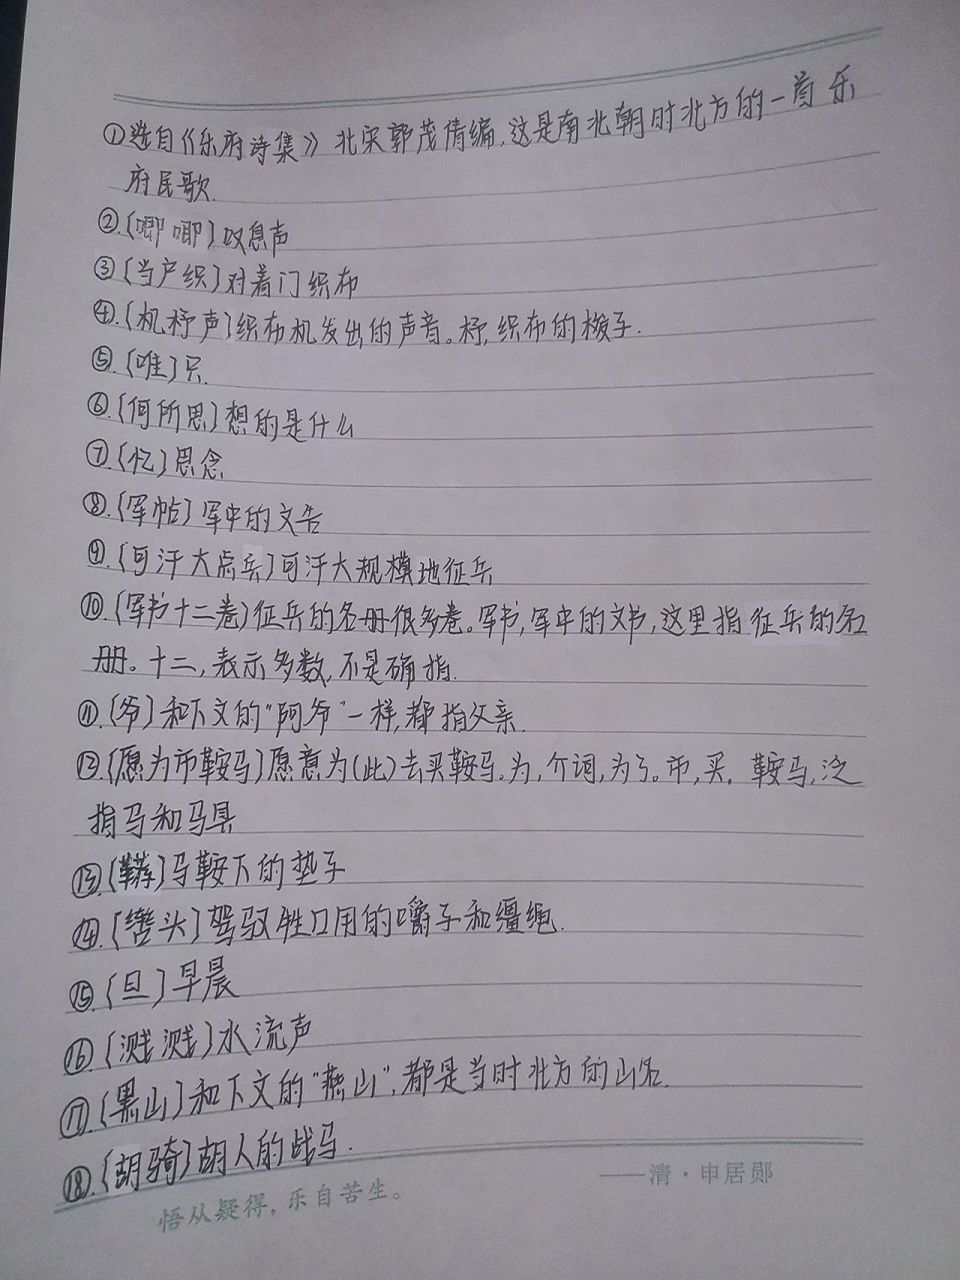 ①选自《乐府诗集》北宋郭茂倩编.这是南北朝时北方的一首乐
府民歌.
②.〔唧唧〕叹息声
③〔当户织〕对着门织布
④.〔机杼声〕织布机发出的声音。杼,织布的梭子.
⑤.〔唯〕只.
⑥.〔何所思〕想的是什么
⑦.〔忆〕思念
⑧.〔军帖〕军中的文告
⑨.〔可汗大点兵〕可汗大规模地征兵
⑩.〔军书十二卷〕征兵的名册很多卷。军书,军中的文书,这里指征兵的名
册。十二,表示多数,不是确指.
⑪.〔爷〕和下文的"阿爷"一样,都指父亲.
⑫.〔愿为市鞍马〕愿意为(此)去买鞍马.为,介词,为了。市,买。鞍马,泛
指马和马具
⑬.〔鞯〕马鞍下的垫子
⑭.〔辔头〕驾驭牲口用的嚼子和缰绳.
⑮.〔旦〕早晨
⑯.〔溅溅〕水流声
⑰.〔黑山〕和下文的"燕山",都是当时北方的山名.
⑱.〔胡骑〕胡人的战马.
——清·申居郧
悟从疑得,乐自苦生。